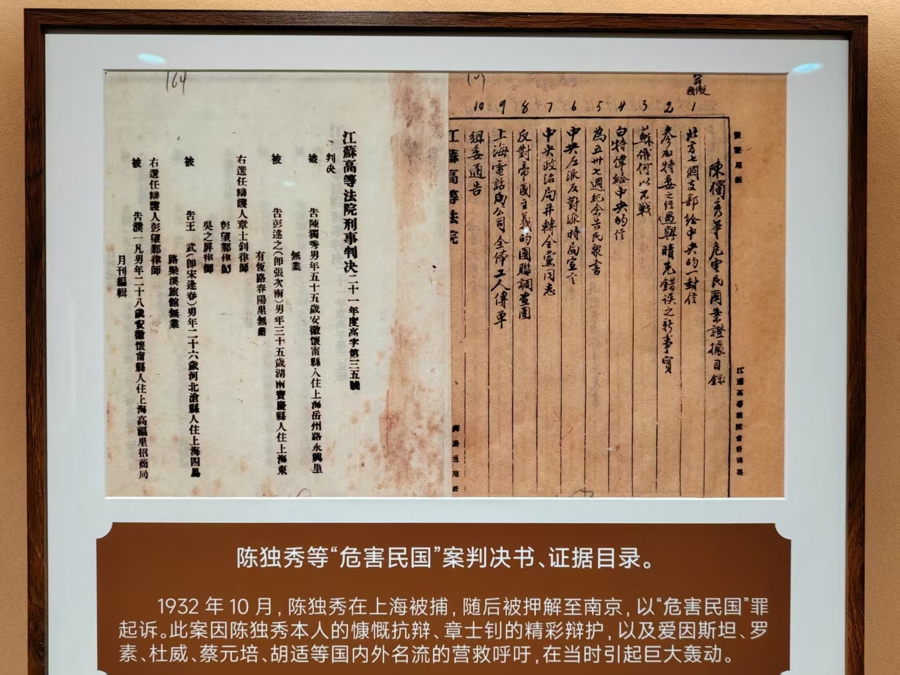 164
江蘇高等法院刑事判決二十一年度高字第三五號
判決
被告陳獨秀男年五十五歲安徽懷甯縣人住上海岳州路永興里
無業
被告彭述之(卽張次南)男年三十五歲湖南寶慶縣人住上海東
有恆路春陽里無業
右選任辯護人章士釗律師
彭望鄴律師
吳之屏律師
被告王武(卽宋逢春)男年二十六歲河北滄縣人住上海四馬
路梁溪旅館無業
右選任辯護人彭望鄴律師
被告濮一凡男年二十八歲安徽懷甯縣人住上海高福里招商局
月刊編輯
陳獨秀等危害民國案證據目錄
1 北方七個支部給中央的一封信
2 參加特委之經過與晴光錯误之新事實
3 蘇俄何以不戰
4 白特偉給中央的信
5 為五卅七週紀念告民衆書
6 中央左派反對派時局宣言
7 中央政治局并轉全黨同志
8 反對帝國主義的國聯調查團
9 上海電話公司全体工人傳單
10 組委通告
江蘇高等法院
陈独秀等“危害民国”案判决书、证据目录。
1932 年 10 月，陈独秀在上海被捕，随后被押解至南京，以“危害民国”罪
起诉。此案因陈独秀本人的慷慨抗辩、章士钊的精彩辩护，以及爱因斯坦、罗
素、杜威、蔡元培、胡适等国内外名流的营救呼吁，在当时引起巨大轰动。